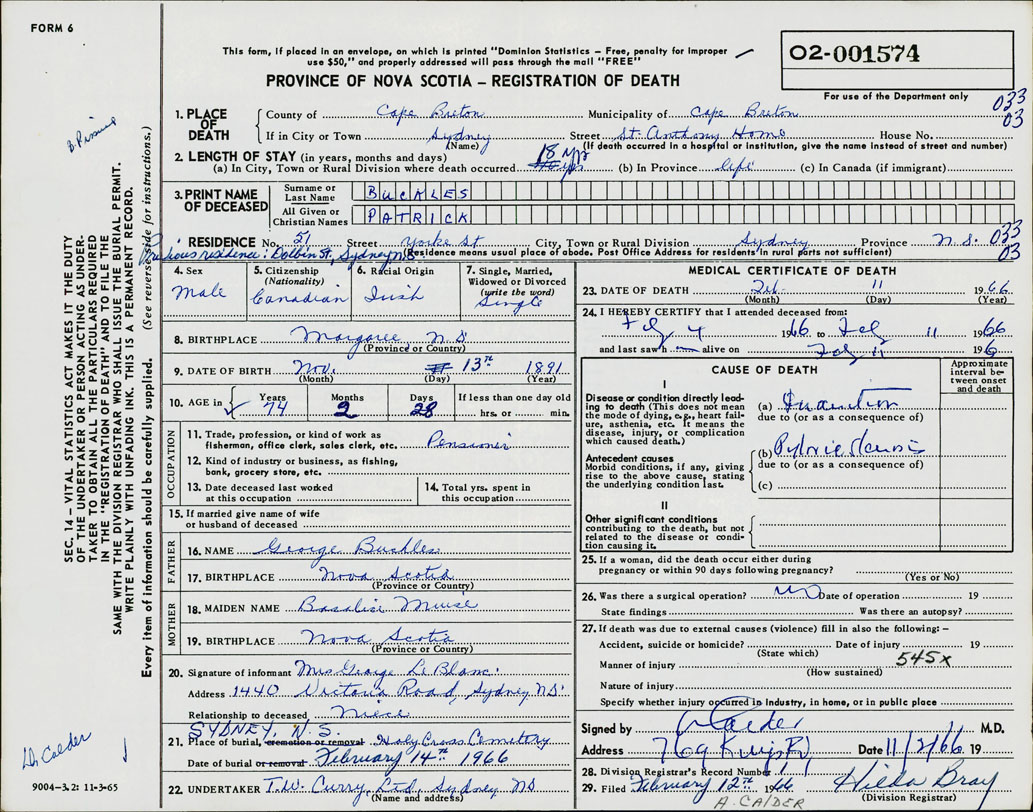 FORM 6
This form, if placed in an envelope, on which is printed "Dominion Statistics – Free, penalty for improper
use $50," and properly addressed will pass through the mail "FREE"
PROVINCE OF NOVA SCOTIA – REGISTRATION OF DEATH
O2-001574
For use of the Department only
033
03
1. PLACE OF DEATH
County of Cape Breton Municipality of Cape Breton
If in City or Town Sydney Street St. Anthony Home House No.
(Name) (If death occurred in a hospital or institution, give the name instead of street and number)
2. LENGTH OF STAY (in years, months and days) 18 yrs
(a) In City, Town or Rural Division where death occurred (b) In Province life (c) In Canada (if immigrant)
3. PRINT NAME OF DECEASED
Surname or Last Name BUCKLES
All Given or Christian Names PATRICK
033
03
RESIDENCE No. 51 Street Yorke St City, Town or Rural Division Sydney Province N.S.
Previous residence: Dolbin St, Sydney NS Residence means usual place of abode. Post Office Address for residents in rural parts not sufficient)
4. Sex Male
5. Citizenship (Nationality) Canadian
6. Racial Origin Irish
7. Single, Married, Widowed or Divorced (write the word) Single
8. BIRTHPLACE Margaree N S
(Province or Country)
9. DATE OF BIRTH Nov. 13th 1891
(Month) (Day) (Year)
10. AGE in Years 74 Months 2 Days 28 If less than one day old hrs. or min.
OCCUPATION
11. Trade, profession, or kind of work as fisherman, office clerk, sales clerk, etc. Pensioner
12. Kind of industry or business, as fishing, bank, grocery store, etc.
13. Date deceased last worked at this occupation
14. Total yrs. spent in this occupation
15. If married give name of wife or husband of deceased
FATHER
16. NAME George Buckles
17. BIRTHPLACE Nova Scotia
(Province or Country)
MOTHER
18. MAIDEN NAME Muise
19. BIRTHPLACE Nova Scotia
(Province or Country)
20. Signature of informant Mrs George Le Blanc
Address 1440 Victoria Road, Sydney NS
Relationship to deceased niece
SYDNEY, N.S.
21. Place of burial, cremation or removal Holy Cross Cemetery
Date of burial or removal February 14th 1966
22. UNDERTAKER T.W. Curry Ltd, Sydney NS
(Name and address)
MEDICAL CERTIFICATE OF DEATH
23. DATE OF DEATH Feb 11 1966
(Month) (Day) (Year)
24. I HEREBY CERTIFY that I attended deceased from:
Feb 4 1966 to Feb 11 1966
and last saw h alive on Feb 11 196
CAUSE OF DEATH
Approximate interval between onset and death
I
Disease or condition directly leading to death (This does not mean the mode of dying, e.g., heart failure, asthenia, etc. It means the disease, injury, or complication which caused death.)
(a) Inanition
due to (or as a consequence of)
Antecedent causes
Morbid conditions, if any, giving rise to the above cause, stating the underlying condition last.
(b) Pyloric Stenosis
due to (or as a consequence of)
(c)
II
Other significant conditions contributing to the death, but not related to the disease or condition causing it.
25. If a woman, did the death occur either during pregnancy or within 90 days following pregnancy?
(Yes or No)
26. Was there a surgical operation? no Date of operation 19
State findings Was there an autopsy?
27. If death was due to external causes (violence) fill in also the following: –
Accident, suicide or homicide? Date of injury 19
(State which)
Manner of injury 545X
(How sustained)
Nature of injury
Specify whether injury occurred in industry, in home, or in public place
Signed by A Calder M.D.
Address 769 Kings Rd Date 11/2/66 19
28. Division Registrar's Record Number
29. Filed February 12th 1966 Hilda Bray
(Division Registrar)
A. CALDER
SEC. 14 – VITAL STATISTICS ACT MAKES IT THE DUTY
OF THE UNDERTAKER OR PERSON ACTING AS UNDER-
TAKER TO OBTAIN ALL THE PARTICULARS REQUIRED
IN THE "REGISTRATION OF DEATH" AND TO FILE THE
SAME WITH THE DIVISION REGISTRAR WHO SHALL ISSUE THE BURIAL PERMIT.
WRITE PLAINLY WITH UNFADING INK. THIS IS A PERMANENT RECORD.
Every item of information should be carefully supplied. (See reverse side for instructions.)
Dr Calder
9004-3.2: 11-3-65